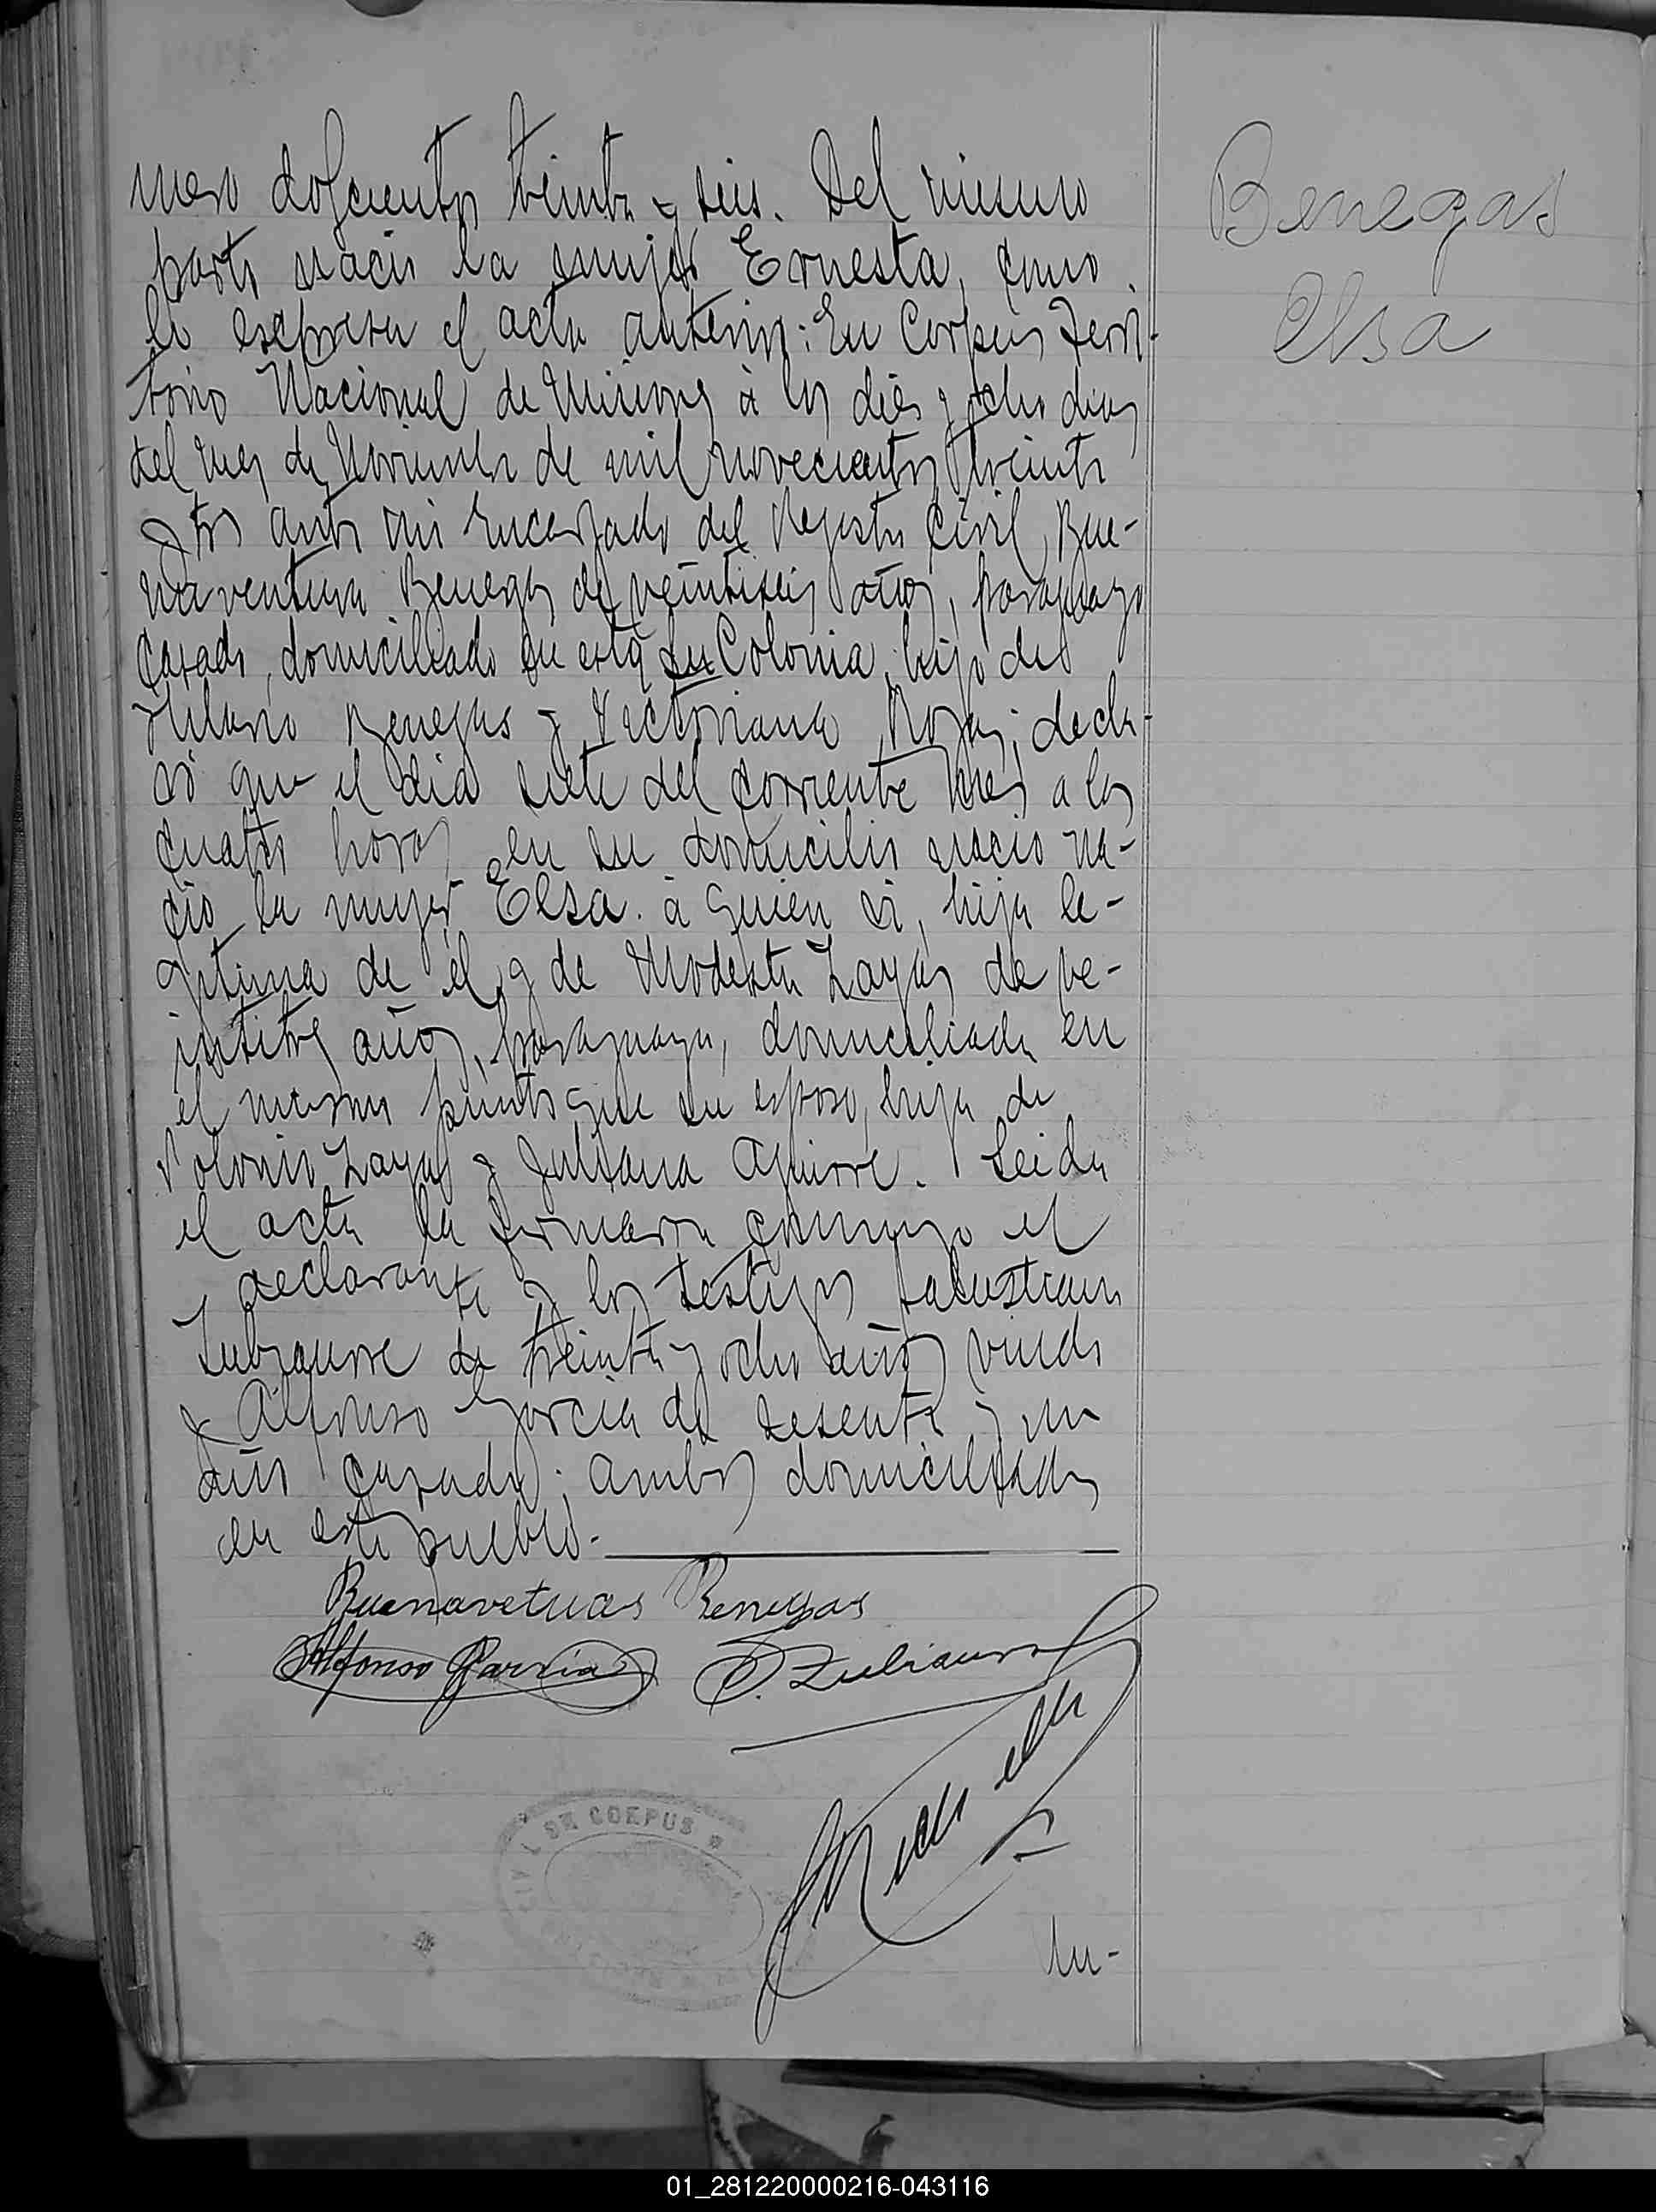 mero doscientos treinta y seis. Del mismo
parto nació la mujer Ernesta, como
lo expresa el acta anterior: En Corpus Terri-
torio Nacional de Misiones à los diés y ocho dias
del mes de Noviembre de mil novecientos treinta
y tres ante mi Encargado del Registro Civil, Bue-
naventura Benegas de veintiseis años, paraguayo
casado, domiciliado en esta Colonia, hijo de
Hilario Benegas y Victoriana Rojas; decla-
ró que el dia siete del corriente mes a las
cuatro horas en su domicilio nacio na-
cio la mujer Elsa. à quien vi, hija le-
gitima de él y de Modesta Zayas de ve-
intitres años, paraguaya, domiciliada en
el mismo punto que su esposo, hija de
Polonio Zayas y Juliana Aguirre. Leida
el acta la firmaron conmigo el
declarante y los testigos Salustiano
Zubzaurre de treinta y ocho años viudo
y Alfonso Garcia de sesenta y un
años casado; ambos domiciliados
en este pueblo.
Buenavetuas Benegas
Alfonso Garzia S. Zubiaurre
CIVIL DE CORPUS
Nu-
Benegas
Elsa
01_281220000216-043116